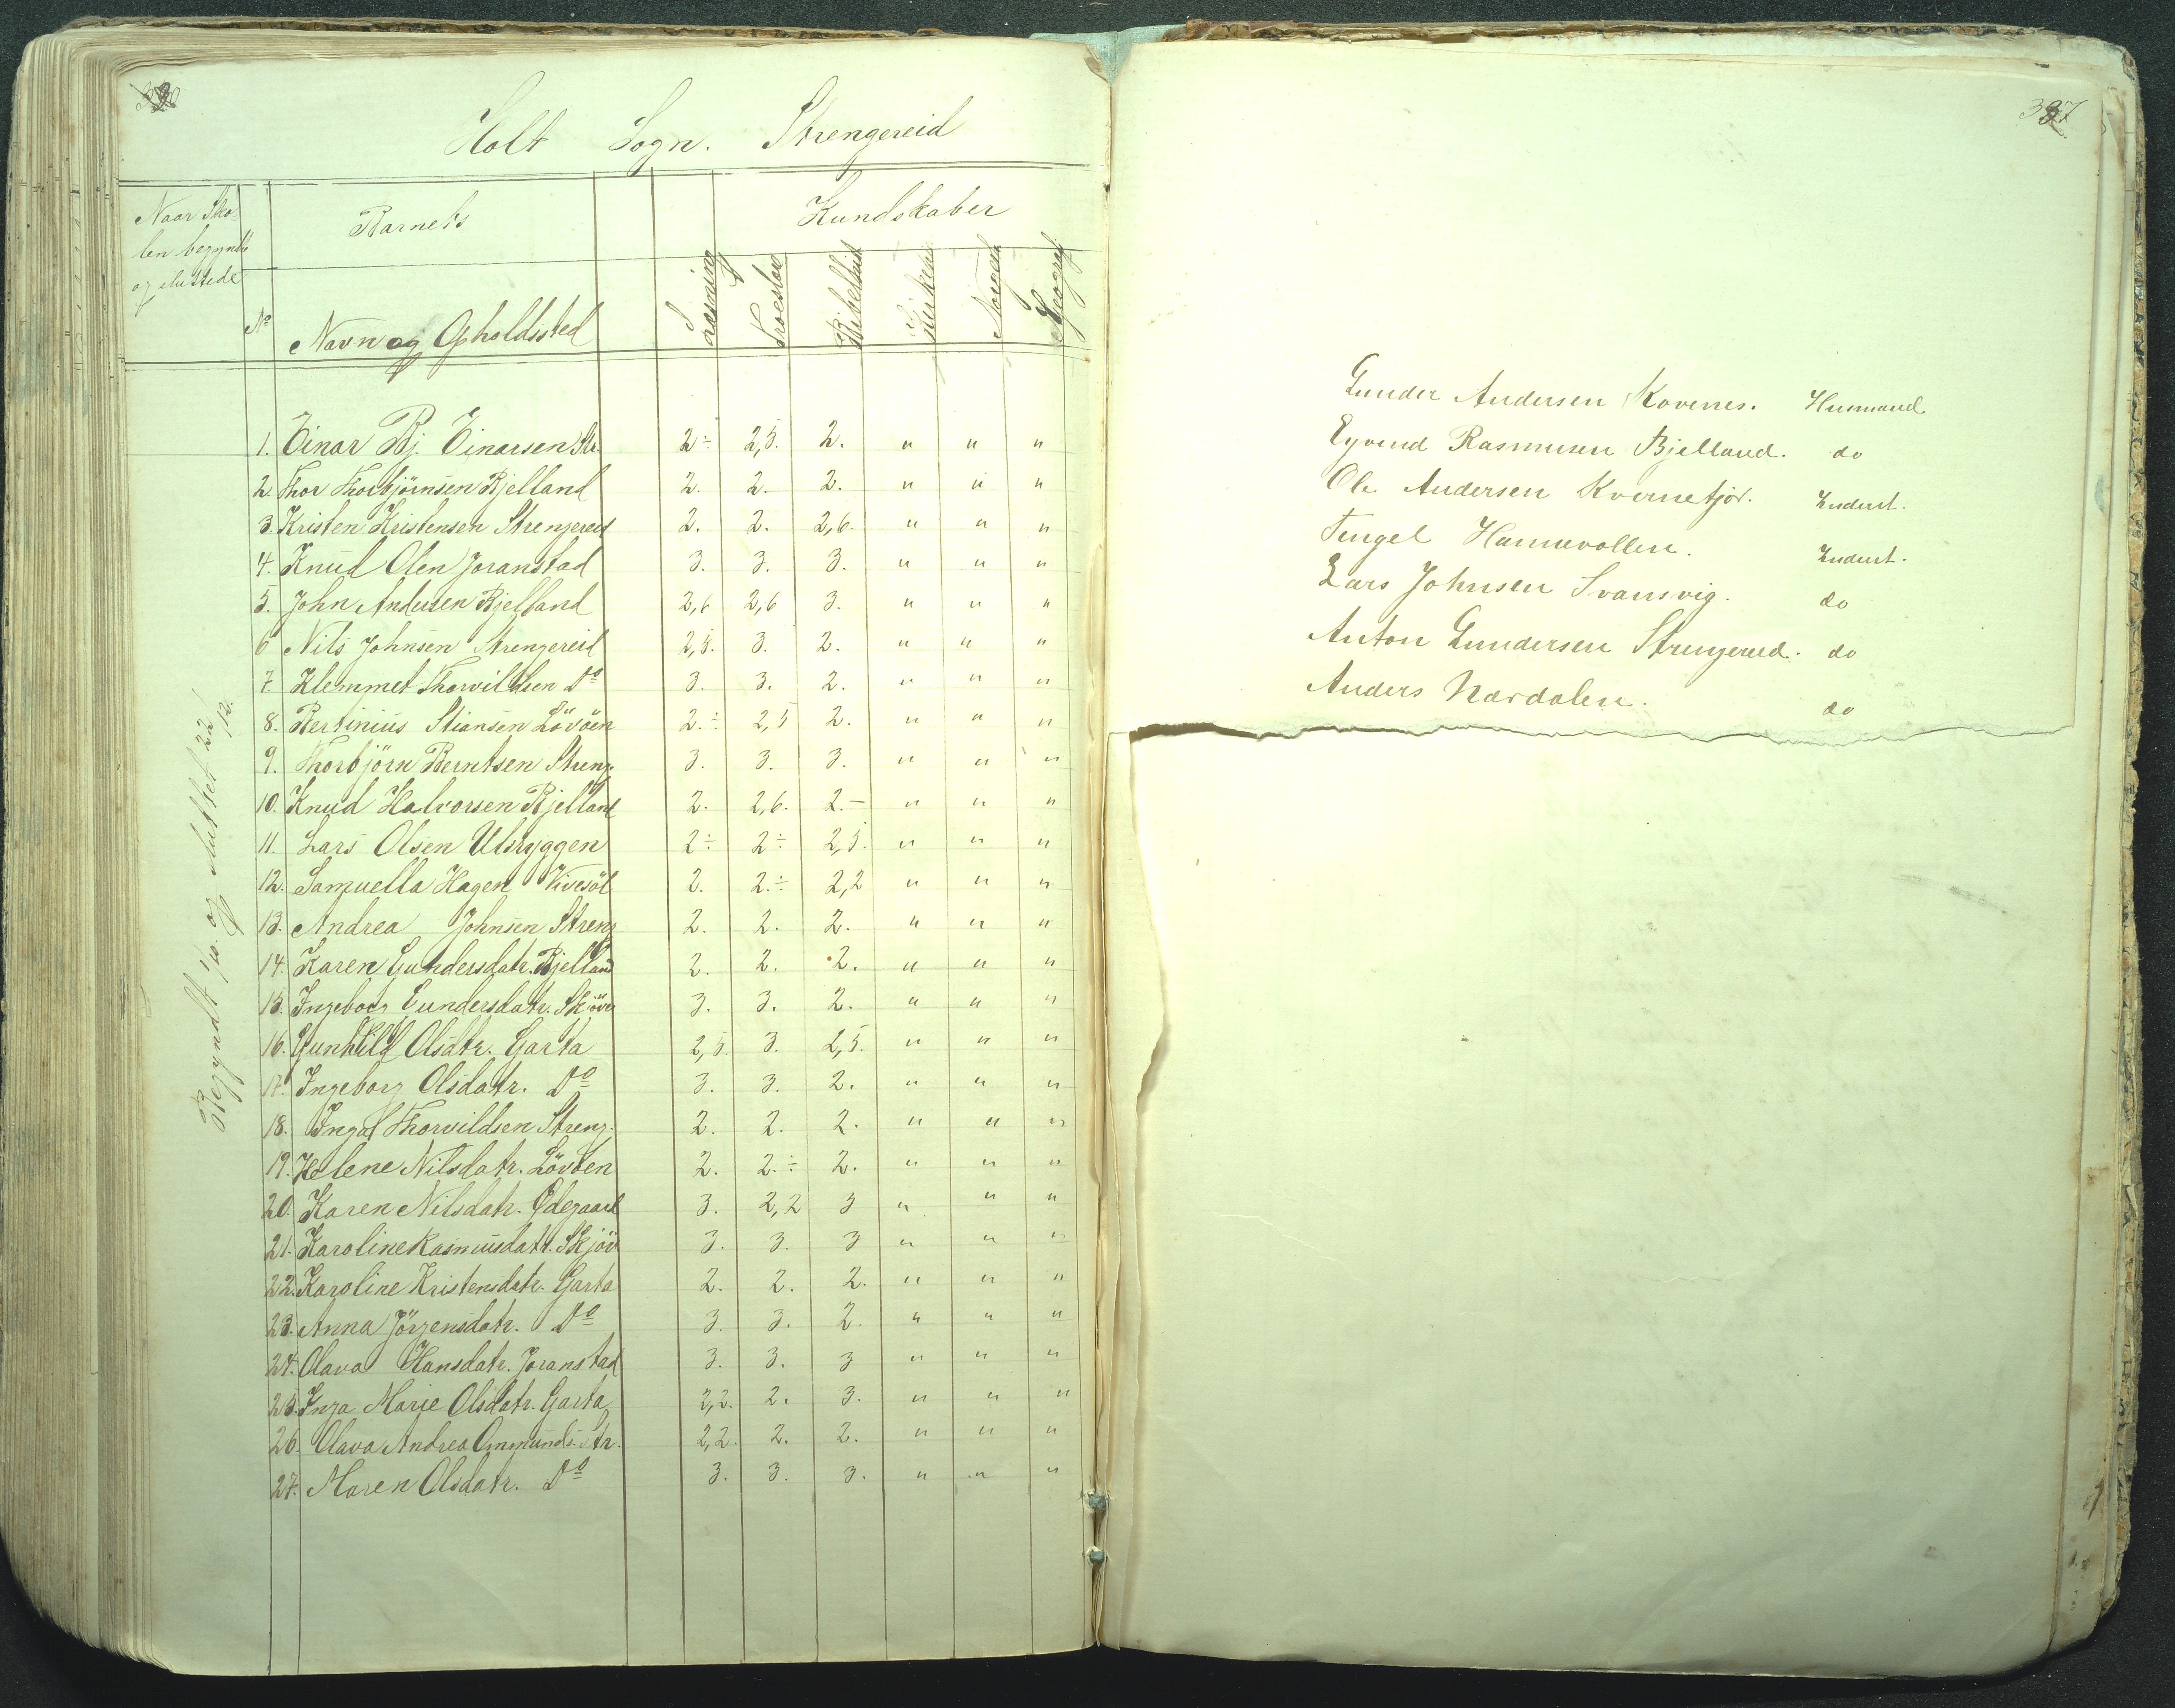 Holt Sogn. Strengereid
Naar Sko-
len begyndte
og sluttede
No
Barnets
Navn og Opholdssted
Kundskaber
Læsning
Troeslær
Bibelhist
Kirkehis
Norges h
Geograf
Begyndt 1/10. og sluttet 22/12.
1. Einar Bj. Einarsen Str. 2÷ 2,5. 2. " " "
2. Thor Thorbjörnsen Bjelland 2. 2. 2. " " "
3. Kristen Kristensen Strengereid 2. 2. 2,6. " " "
4. Knud Olen Joranstad 3. 3. 3. " " "
5. John Andersen Bjelland 2,6 2,6 3. " " "
6 Nils Johnsen Strengereid 2,5. 3. 2. " " "
7. Klemmet Thorvildsen Do 3. 3. 2. " " "
8. Bertinius Stiansen Lövöen 2.÷ 2,5 2. " " "
9. Thorbjörn Berntsen Streng. 3. 3. 3. " " "
10. Knud Halvorsen Bjelland 2. 2,6. 2.- " " "
11. Lars Olsen Ulsryggen 2÷ 2÷ 2,5. " " "
12. Samuella Hagen Vivesöl 2. 2.÷ 2,2 " " "
13. Andrea Johnsen Streng 2. 2. 2. " " "
14. Karen Gundersdatr. Bjelland 2. 2. 2. " " "
15. Ingeborg Gundersdatr. Skjöv 3. 3. 2. " " "
16. Gunhild Olsdtr. Garta 2,5. 3. 2,5. " " "
17. Ingeborg Olsdatr. Do 3. 3. 2. " " "
18. Inga Thorvildsen Streng. 2. 2. 2. " " "
19. Helene Nilsdatr. Lövöen 2. 2.÷ 2. " " "
20. Karen Nilsdatr. Ödegaard 3. 2,2 3 " " "
21. Karoline Rasmusdatr. Skjöv 3. 3. 3 " " "
22. Karoline Kristensdatr. Garta 2. 2. 2. " " "
23. Anna Jörgensdatr. Do 3. 3. 2. " " "
24. Olava Hansdatr. Joranstad 3. 3. 3 " " "
25. Inga Marie Olsdatr. Garta 2,2. 2. 3. " " "
26. Olava Andrea Ommunds. Str. 2,2. 2. 2. " " "
27. Maren Olsdatr. Do 3. 3. 3. " " "
337
Gunder Andersen Kovenes. Husmand.
Eyvend Rasmusen Bjelland. do
Ole Andersen Kvernetjör. Inderst.
Tengel Hannevollen. Inderst.
Lars Johnsen Svansvig. do
Anton Gundersen Strengereid. do
Anders Nardalen. do